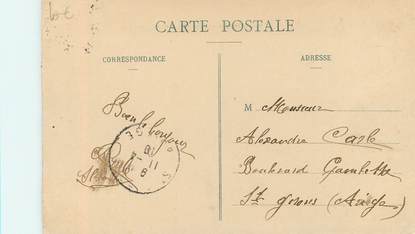 CARTE POSTALE
CORRESPONDANCE
ADRESSE
M Monsieur
Alexandre Carle
Boulevard Gambetta
St Girons (Ariège)
Bonjour